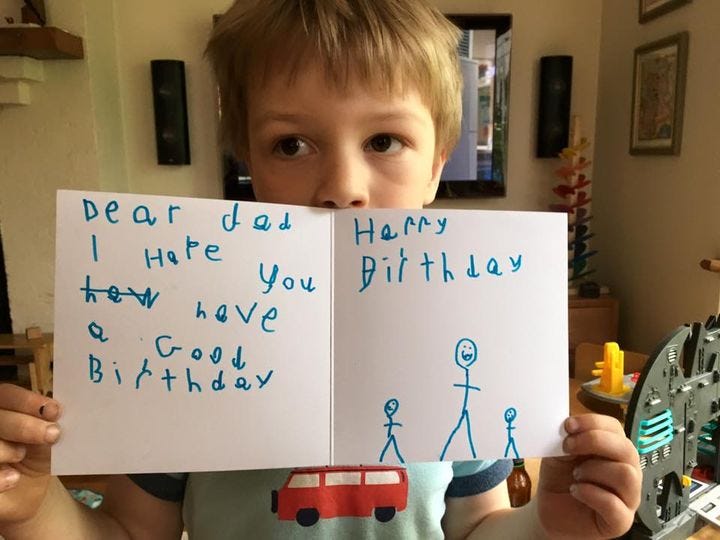 Dear dad
I HoPe You
have
a Good
Birthday
HaPPy
Birthday